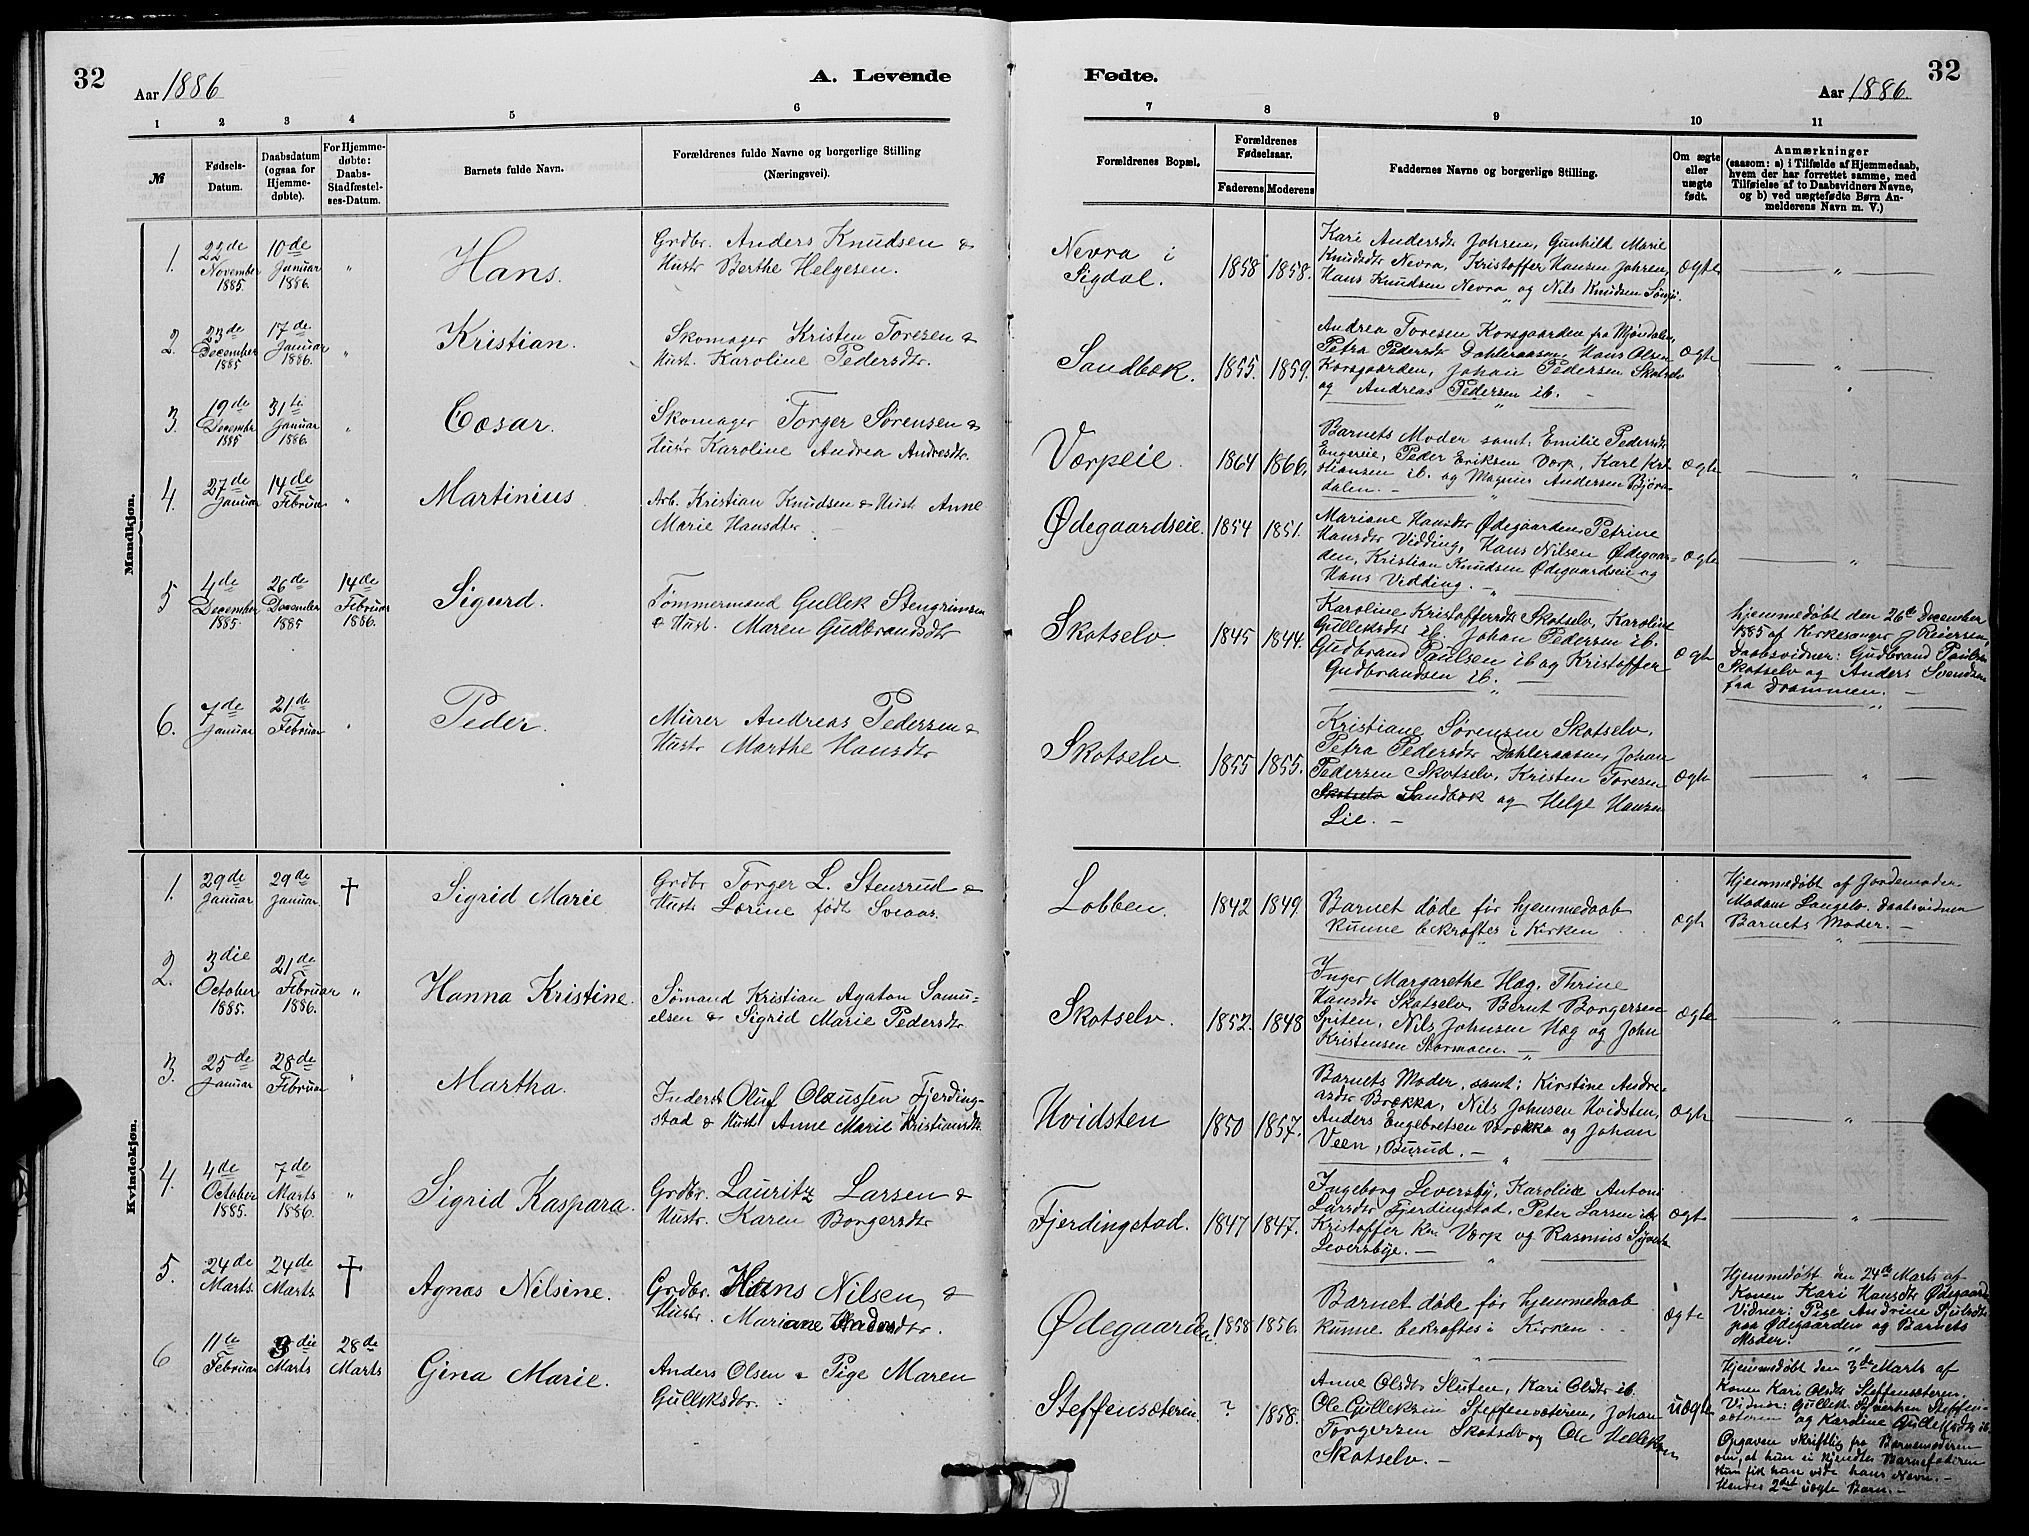 32
Aar 1886
A. Levende
1 2 3 4 5 6
№
Fødsels-
Datum.
Daabsdatum
(ogsaa for
Hjemme-
døbte).
For Hjemme-
døbte:
Daabs-
Stadfæstel-
ses-Datum.
Barnets fulde Navn.
Forældrenes fulde Navne og borgerlige Stilling
(Næringsvei).
Mandkjøn.
1. 22de November 1885. 10de Januar 1886. " Hans.
Grdbr. Anders Knudsen &
Hustr Berthe Helgesen.
2. 23de December 1885 17de Januar 1886. " Kristian.
Skomager Kristen Toresen &
Hust. Karoline Pedersdtr.
3. 19de December 1885 31te Januar 1886. " Cæsar.
Skomager Torger Sørensen &
Hustr Karoline Andrea Andresdtr.
4. 27de Januar 14de Februar " Martinius
Arb. Kristian Knudsen & Hust. Anne
Marie Hansdtr
5 4de December 1885. 26de December 1885 14de Februar 1886. Sigurd.
Tømmermand Gullek Stengrimsen
& Hust. Maren Gudbrandsdtr
6. 7de Januar 21de Februar " Peder.
Murer Andreas Pedersen &
Hustr Marthe Hansdtr
Kvindekjøn.
1. 29de Januar 29de Januar. † Sigrid Marie
Grdbr Torger L. Stensrud &
Hustr Lorine født Sveaas.
2. 3die October 1885. 21de Februar 1886. " Hanna Kristine.
Sømand Kristian Agaton Samu-
elsen & Sigrid Marie Pedersdtr
3. 25de Januar 28de Februar " Martha.
Inderst Oluf Olaussen Fjerding-
stad & Hustr Anne Marie Kristiansdtr
4. 4de October 1885. 7de Marts 1886. " Sigrid Kaspara.
Grdbr. Lauritz Larsen &
Hustr. Karen Borgersdtr
5. 24de Marts. 24de Marts. † Agnes Nilsine.
Grdbr. Hans Nilsen &
Hustr. Mariane
6 11te Februar 3die Marts 28de Marts Gina Marie.
Anders Olsen & Pige Maren
Gulleksdtr.
Fødte.
32
Aar 1886.
7 8 9 10 11
Forældrenes Bopæl.
Forældrenes
Fødselsaar.
Faderens Moderens
Faddernes Navne og borgerlige Stilling.
Om ægte
eller
uægte
født.
Anmærkninger
(saasom: a) i Tilfælde af Hjemmedaab,
hvem der har forrettet samme, med
Tilføielse af to Daabsvidners Navne,
og b) ved uægtefødte Børn An-
melderens Navn m. V.)
Nevra i
Sigdal. 1858 1858. ægte "
Kari Andersdtr Johren, Gunhild Marie
Knudsdtr Nevra, Kristoffer Hansen Johren,
Hans Knudsen Nevra og Nils Knudsen
Sandbæk. 1855. 1859. ægte "
Andrea Toresen Korsgaarden fra Mjøndalen,
Petra Pedersdtr Dahleraasen, Hans Olsen
Korsgaarden, Johan Pedersen Skotselv
og Andreas Pedersen ib. -
Værpeie. 1864 1866. ægte "
Barnets Moder samt: Emilie Pedersdtr
Engereie, Peder Eriksen Vorp, Karl Kri-
stiansen ib. og Magnus Andersen Bjøra-
dalen. -
Ødegaardseie. 1854 1851. ægte "
Mariane Hansdtr Ødegaarden, Petrine
Hansdtr Vidding, Hans Nilsen Ødegaar-
den, Kristian Knudsen Ødegaardseie og
Hans Vidding.
Skotselv 1845 1844. ægte
Karoline Kristoffersdtr Skotselv, Karoline
Gulleksdtr ib. Johan Pedersen ib.
Gudbrand Paulsen ib og Kristoffer
Gudbrandsen ib.
Hjemmedøbt den 26de December
1885 af Kirkesanger J Reiersen
Daabsvidner: Gudbrand Paulsen
Skotselv og Anders Svendsen
fra Drammen. -
Skotselv. 1855 1855. ægte "
Kristiane Sørensen Skotselv.
Petra Pedersdtr Dahleraasen, Johan
Pedersen Skotselv, Kristen Toresen
Skotselv Sandbæk og Helge Hansen
Lie. -
Lobben. 1842 1849. ægte
Barnet døde før hjemmedaab
kunne bekræftes i Kirken
Hjemmedøbt af Jordemoder
Madam Langelv. Daabsvidner
Barnets Moder. -
Skotselv. 1852. 1848 ægte "
Inger Margarethe Hæg, Thrine
Hansdtr Skotselv, Bernt Borgersen
Spiten, Nils Johnsen Hæg og John
Kristensen Stormoen. -
Hvidsten 1850 1857. ægte "
Barnets Moder, samt: Kirstine Andre-
asdtr Brækka, Nils Johnsen Hvidsten,
Anders Engebretsen Brækka og Johan
Veen, Burud. -
Fjerdingstad. 1847 1847. ægte "
Ingeborg Leversby, Karoline Antoni
Larsdtr Fjerdingstad, Peter Larsen ib
Kristoffer Kn. Vorp og Rasmus
Leversbye. -
Ødegaarden 1858 1856. ægte
Barnet døde før hjemmedaab
kunne bekræftes i Kirken. -
Hjemmedøbt den 24de Marts af
Konen Kari Hansdtr Ødegaard
Vidner: Pige Andrine
paa Ødegaarden og Barnets
Moder.
Steffensæteren ? 1858. uægte
Anne Olsdtr Sluten, Kari Olsdtr ib.
Ole Gulleksen Steffensæteren, Johan
Torgersen Skotselv og Ole Helleksen
Skotselv. -
Hjemmedøbt den 3de Marts af
Konen Kari Olsdtr Steffensæteren.
Vidner: Gullek Syvertsen Steffen-
sæteren og Karoline Gulleksdtr ib.
Opgaven skriftlig fra Barnemoderen
om, at hun ei kjendte Barnefaderen
Hun fik kun vide hans Navn. -
Hendes 2det uægte Barn. -